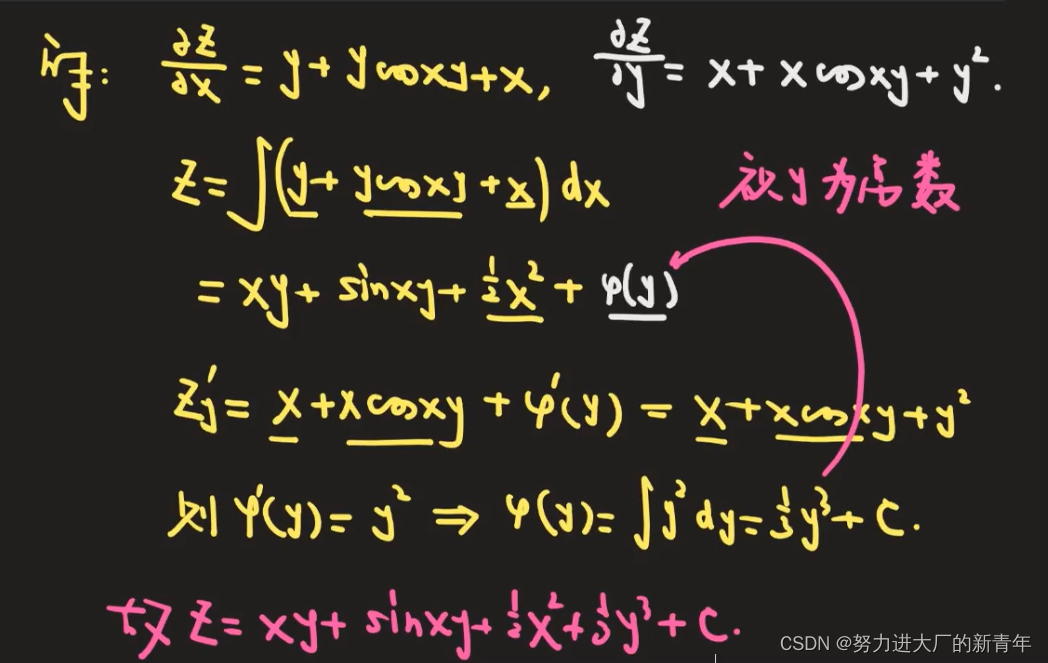 解: ∂z/∂x = y + ycosxy + x, ∂z/∂y = x + xcosxy + y².
z = ∫(y + ycosxy + x)dx 视y为常数
= xy + sinxy + ½x² + φ(y)
z'y = x + xcosxy + φ'(y) = x + xcosxy + y²
则 φ'(y) = y² ⇒ φ(y) = ∫y²dy = ⅓y³ + C.
故 z = xy + sinxy + ½x² + ⅓y³ + C.
CSDN @努力进大厂的新青年